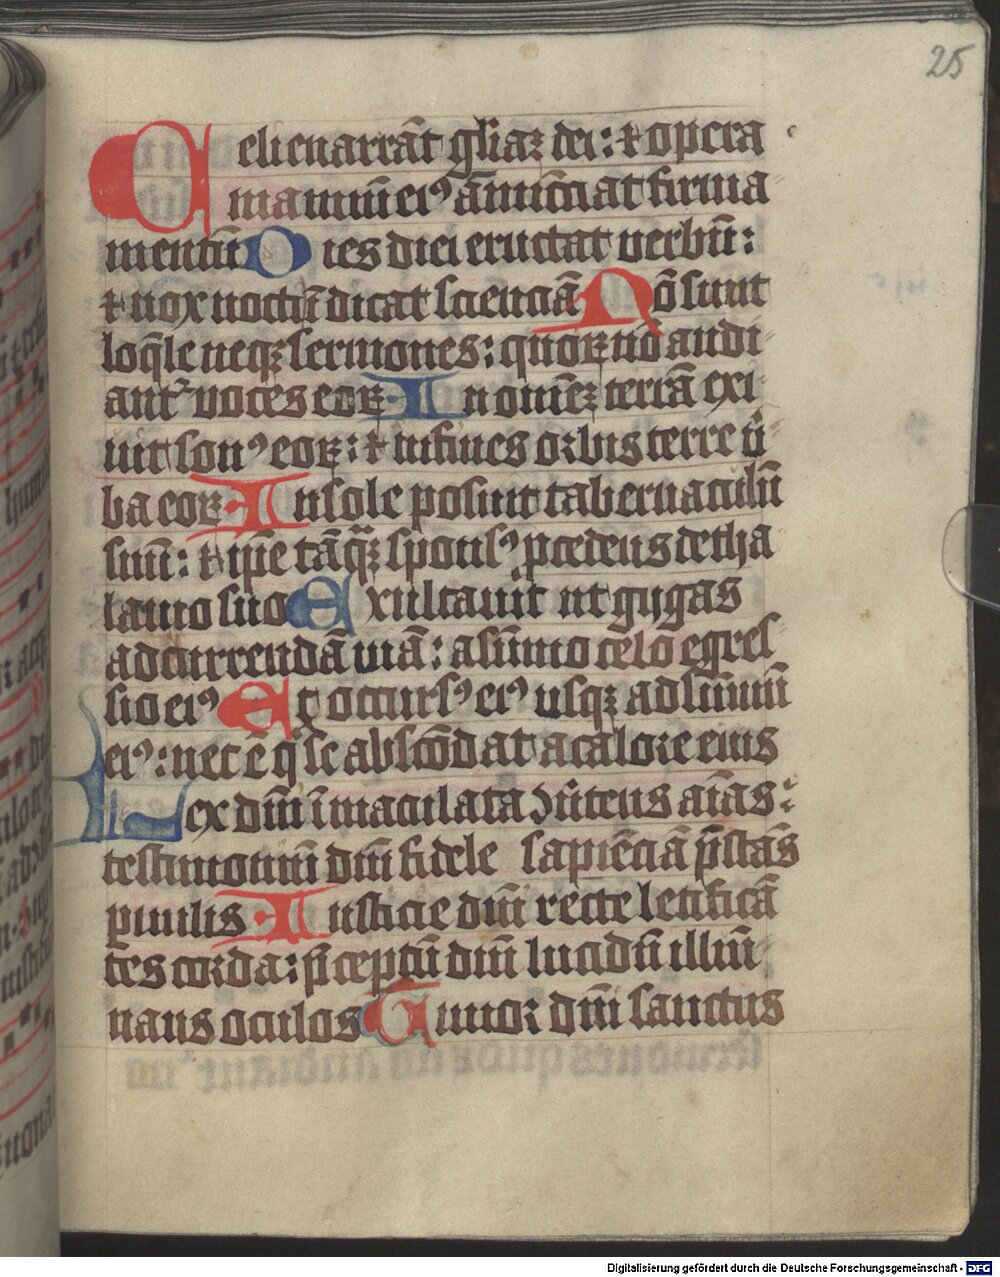 25
Celi enarrāt gl̄iaꝫ dei: ⁊ opera
manuū eiꝰ ānūciat firma
mentū Dies diei eructat verbū:
⁊ nox nocti īdicat scienciā Nō sunt
loq̄le neqꝫ sermones: quoꝝ nō audi
antᷣ voces eoꝝ In omnēꝫ terrā exi
uit sonꝰ eoꝝ: ⁊ in fines orbis terre v̄
ba eoꝝ In sole posuit tabernaculū
suū: ⁊ ip̄e tāqꝫ sponsꝰ p̄cedens de tha
lamo suo Exultauit ut gygas
ad currendā uiā: a sūmo celo egres
sio eiꝰ Et occursꝰ eiꝰ usqꝫ ad sūmū
eiꝰ: nec ē q̄ se abscōdat a calore eius
Lex dn̄i īmaculata ꝯuͤtens aīas:
testimoniū dn̄i fidele sapiēciā p̄stās
ꝑuulis Iusticie dn̄i recte letificā
tes corda: p̄ceptū dn̄i lucidū illūi
nans oculos Timor dn̄i sanctus
Digitalisierung gefördert durch die Deutsche Forschungsgemeinschaft - DFG